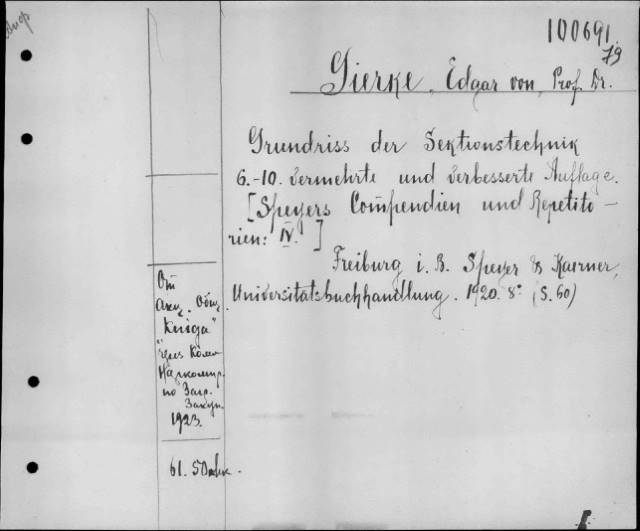 100691.
79
Gierke, Edgar von, Prof. Dr.
Grundriss der Sektionstechnik
6.-10. vermehrte und verbesserte Auflage.
[Speyers Compendien und Repetito-
rien: IV.]
Freiburg i. B. Speyer & Kaerner,
Universitätsbuchhandlung. 1920. 8° (S. 60)
От
Акц. Общ.
"Книга"
через Ком.
Наркомпр.
по Загр.
Закуп.
1923.
61. 50